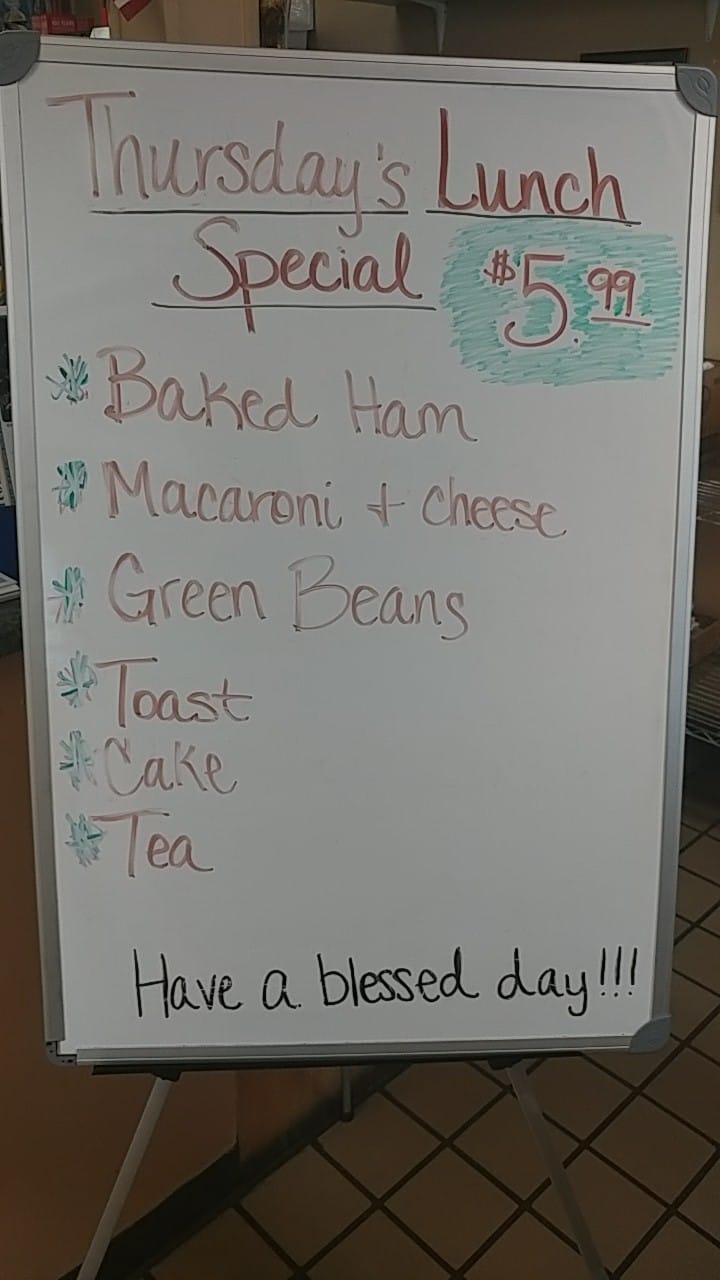 Thursday's Lunch
Special $5.99
* Baked Ham
* Macaroni + cheese
* Green Beans
* Toast
* Cake
* Tea
Have a blessed day!!!